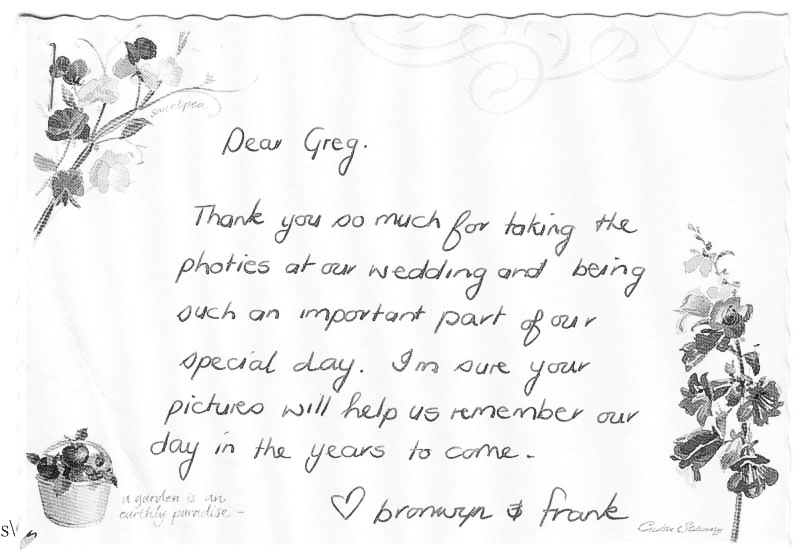 sweetpea.
Dear Greg.
Thank you so much for taking the
photies at our wedding and being
such an important part of our
special day. I'm sure your
pictures will help us remember our
day in the years to come.
a garden is an
earthly paradise -
♡ bronwyn & frank
Creative Stationery
s\